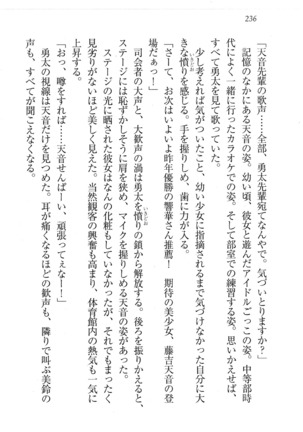 236
「天音先輩の歌声……全部、勇太先輩宛てなんやで。気づいとりますか？」
記憶のなかにある天音の姿。幼い頃、彼女と遊んだアイドルごっこの姿。中等部時
代によく一緒に行ったカラオケでの姿。そして部室での練習する姿。思いかえせば、
すべて勇太を見て歌っていた。
少し考えれば気がついたこと、幼い少女に指摘されるまで気づけなかった自分に大
きな憤りを感じる。手を握りしめ、歯に力が入る。
「さーて、お次はいよいよ昨年優勝の響華さん推薦！　期待の美少女、藤吉天音の登
場だぁっ！」
司会者の大声と、大歓声の渦は勇太を憤りの鎖から解放する。後ろを振りかえると、
ステージに恥ずかしそうに肩を狭め、マイクを握りしめる天音の姿があった。
ステージの光に晒された彼女はなんの化粧もしていなかったが、それでもまったく
見劣りがないほど美しく見えた。当然観客の興奮も高まり、体育館内の熱気も一気に
上昇する。
「おっ、噂をすれば……天音せんぱーい、頑張ってぇなー！」
勇太の視線は天音だけを見つめた。耳が痛くなるほどの歓声も、隣りで叫ぶ美鈴の
声も、すべてが聞こえなくなる。